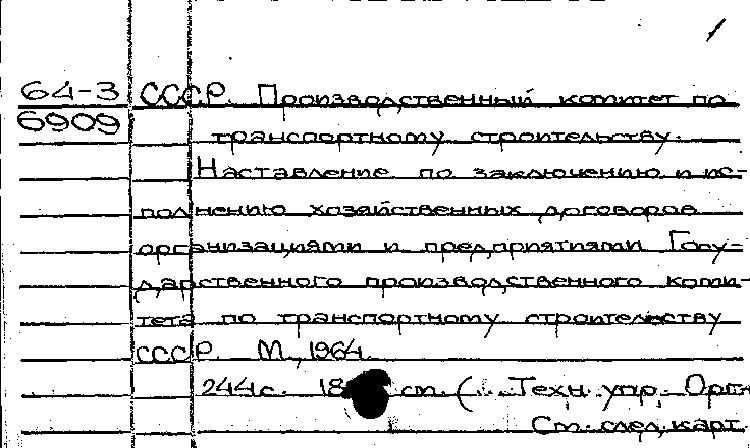 64-3 СССР. Производственный комитет по
6909 транспортному строительству.
Наставление по заключению и ис-
полнению хозяйственных договоров
организациями и предприятиями Госу-
дарственного производственного коми-
тета по транспортному строительству
СССР. М., 1964.
244 с. см. ( Техн. упр. Орг
См. след. карт.